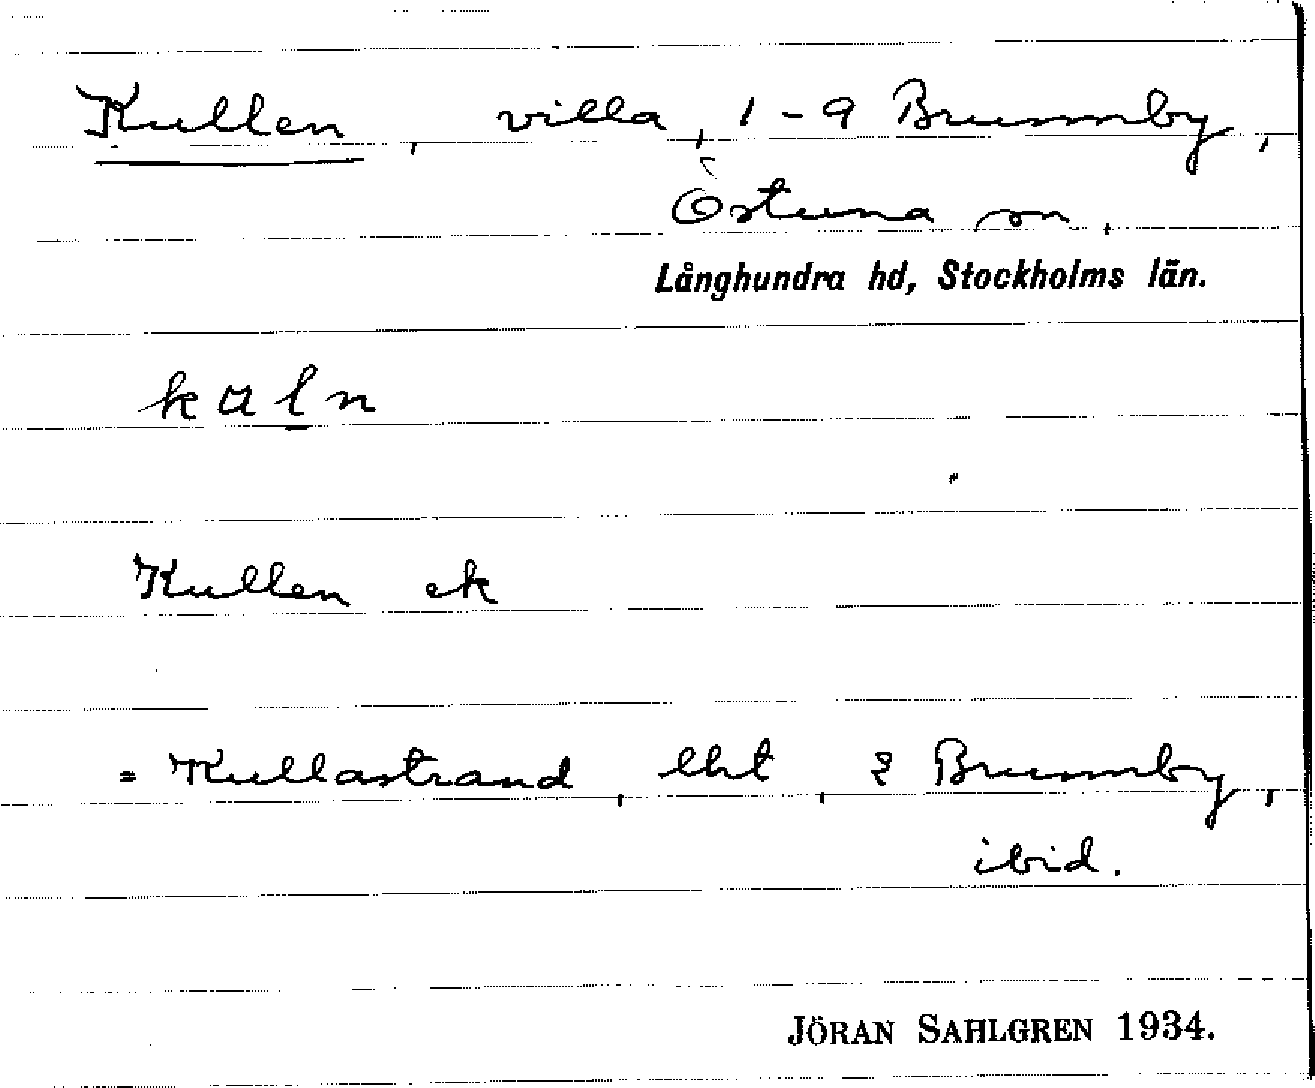 Kullen, villa, 1-9 Brunnby,
Östuna sn,
Långhundra hd, Stockholms län.
kuln
Kullen ek
= Kullastrand, lht, 2 Brunnby,
ibid.
JÖRAN SAHLGREN 1934.